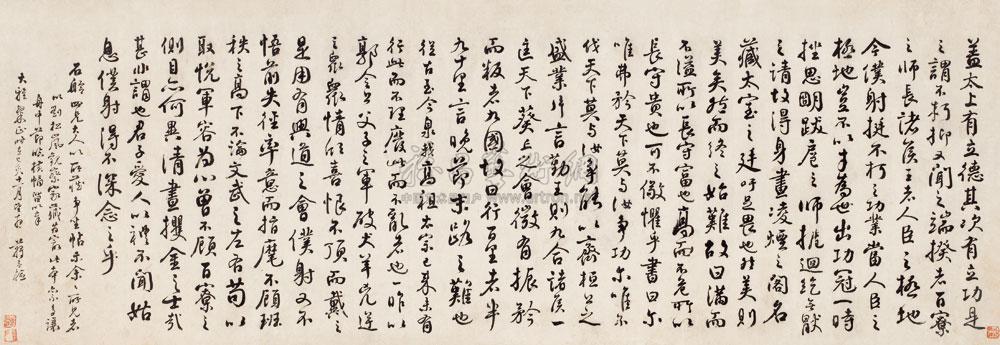 蓋太上有立德其次有立功是
之謂不朽抑又聞之端揆者百寮
之師長諸侯王者人臣之極地
今僕射挺不朽之功業當人臣之
極地豈不以才為世出功冠一時
挫思明跋扈之師抗迴紇無厭
之請故得身畫凌煙之閣名
藏太室之廷吁足畏也然美則
美矣然而終之始難故曰滿而
不溢所以長守富也高而不危所以
長守貴也可不儆懼乎書曰尔
唯弗矜天下莫与汝爭功尔唯不
伐天下莫与汝爭能以齊桓公之
盛業片言勤王則九合諸侯一
匡天下葵丘之會微有振矜
而叛者九國故曰行百里者半
九十里言晚節末路之難也
從古至今泉我高祖太宗已來未有
行此而不理廢此而亂者也一昨以
郭令公父子之軍破犬羊兇逆
之眾眾情欣喜恨不頂而戴之
是用有興道之會僕射又不
悟前失徑率意而指麾不顧班
秩之高下不論文武之左右苟以
取悅軍容為心曾不顧百寮之
側目亦何異清晝攫金之士哉
甚非謂也君子愛人以禮不聞姑
息僕射得不深念之乎